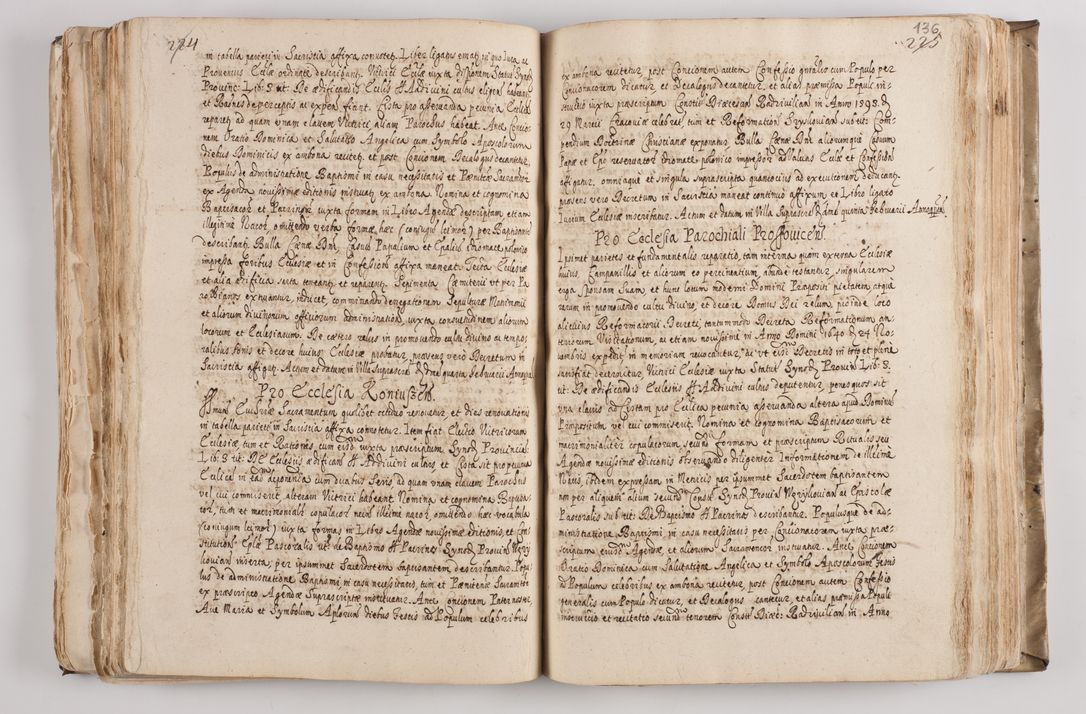 224
in tabella parieti in Sacristia affixa connotetr. Liber ligatus ematr in quo Iura ac
Proventus Ecclae ordinate describantr. Victrici Ecclae iuxta disponem Statut Synod
Provinc: Lib: 3. tit: De aedificandis Ecclis et A divini cultus eligen habeantr
et Raones de perceptis ac expen fiant. Cista pro asservanda pecunia Ecclesiae
reparetr ad quam unam clavem Victrici, aliam Parochus habeat. Ante Concio-
nem Oratio Dominica et Salutatio Angelica cum Symbolo Apostolorum
diebus Dominicis ex ambona recitetr, et post Concionem Decalogus decantetur,
Populus de administratione Baptismi in casu necessitatis et Paenitae Sacramento
ex Agenda novissimae editionis instruatr ex ambona. Nomina et cognomina
Baptisator et Patrinor iuxta formam in Libro Agendae descriptam, etiam
illegitime Nator, omittendo verba formae, haec (coniugum leimor) per Baptisantem
describantr. Bulla Caenae Dni, Casus Papalium et Epalium idiomate polonico
impressa foribus Ecclesiae et in Confessionli affixa maneat. Tecta Ecclesiae
et alia aedificia sarta teneantr et reparentr. Sepimenta Caemiterii ut per Pa-
rochianos extruantur, indicet, comminando denegationem Sepulturae Matrimonii
et aliorum divinorum officiorum administration, iuxta consuetudinem aliorum
locorum et Ecclesiarum. De caetero zelus in promovendo cultu divino ac tempo-
ralibus bonis et decore huius Ecclesiae probatur, praesens vero Decretum in
Sacristia affigatr. Actum et datum in Villa Suprascra die quarta Februarii Anno quo su

Pro Ecclesia Koniuszen.
Ssmum Euchriae Sacramentum quolibet octiduo renovetur, et dies renovationis
in tabella parieti in Sacristia affixa connotetur. Item fiat Electio Vitricorum
Ecclesiae, tum et Rationes cum eisd iuxta praescriptum Synod Provincial:
Lib: 3. tit: De Ecclesiis aedifican et A divini cultus, et Cista sit pro pecunia
Ecclica in ea deponenda cum duabus Seris, ad quam unam clavem Parochus
vel cui commiserit, alteram Victrici habeant. Nomina et cognomina Baptisa-
tor, tum et matrimonialr copulator necn illitme nator, omittendo haec vocabula
(coniugum leimor) iuxta formam in Libro Agendae novissimae editionis, et Con
stitution Eplae Pastoralis tit: de Baptismo et Patrinis Synod Provin Ngry
slovian inserta, per ipsummet Sacerdotem baptisantem describantur. Popu
lus de administratione Baptismi in casu necessitatis, tum et Paenitae Sacramto
ex praescripto Agendae Suprascriptae instruatur. Ante concionem Pater noster
Ave Maria et Symbolum Aplorum diebus Festis ad Populum celebribus
136
225
ex ambona recitetur, post Concionem autem Confessio gnralis cum Populo per
Concionatorem dicatur, et Decalogus decantetur, et alias praemissa Populi in-
structio iuxta praescriptum Constit Dioecesan Radzivilian in Anno 1593. d
29 Martii Cracoviae celebrat, tum et Reformation Gryslovian sub tit: Com-
pendium Doctrinae Christianae exponatur. Bulla Caenae Dni aliorumque Casuum
Papae et Epo reservator idiomate polonico impressor ad Valvas Ecclae et Confessional
affigatur, omniaque et singula suprascripta quantocius ad executionem deducantr,
praesens vero Decretum in Sacristia maneat continuo affixum, et Libro ligato
Iurium Ecclesiae inscribatur. Actum et datum in Villa Suprascra die quinta Februarii Anno quo su

Pro Ecclesia Parochiali Prossovicen.
Ipsimet parietes et fundamentalis reparatio, tam interna quam externa Ecclesiae
huius, Campanilis et aliorum eo pertinentium, abunde testantur, singularem
erga Sponsam Suam, et hunc locum moderni Domini Praepositi pietatem atque
curam in promovendo cultu divino, et decore Domus Dei zelum, proinde loco
alicuius Reformatorii Decreti, tantummodo Decreta Reformationum an-
teriorum Visitationum, ac etiam novissime in Anno Domini 1640 d. 24 No-
vembris expedit in memoriam revocantur, ac ut eisd Decretis in toto et plene
satisfiat decernitur, Victrici Ecclesiae iuxta Statut Synod Provin Lib: 3.
tit: De aedificandis Ecclesiis et A divini cultus deputentur, penes quos sit
una clavis ad Cistam pro Ecclica pecunia asservanda, altera apud Dominum
Praepositum, vel cui commiserit. Nomina et Cognomina Baptisatorum et
matrimonialiter copulatorum, secund formam et praescriptum Ritualis seu
Agendae novissimae editionis observando diligenter Informationem de illitme
Natis, ibidem expressam, in Metricis per ipsummet Sacerdotem baptisantem
non per aliquem alium secund Constit Synod Provin Ngryslovian ac Epistolae
Pastoralis sub tit: De Baptismo et Patrinis describantur. Populusque de ad-
ministratione Baptismi in casu necessitatis per Concionatorem iuxta prae-
scriptum eiusd Agendae et aliorum Sacramentor instruatur. Ante Concionem
Oratio Dominica cum Salutatione Angelica et Symbolo Apostolorum Festis
ad Populum celebribus ex ambona recitetur, post Concionem autem Confessio
generalis cum Populo dicatur, et Decalogus cantetur, et alias praemissa Populi
instructio et recitatio secund tenorem Constit Dioec: Radzivilian in Anno